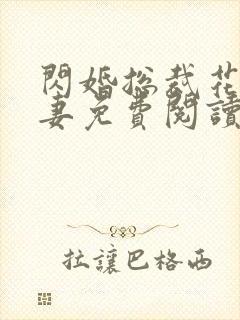 閃婚總裁花
妻免費閱讀
拉讓巴格西